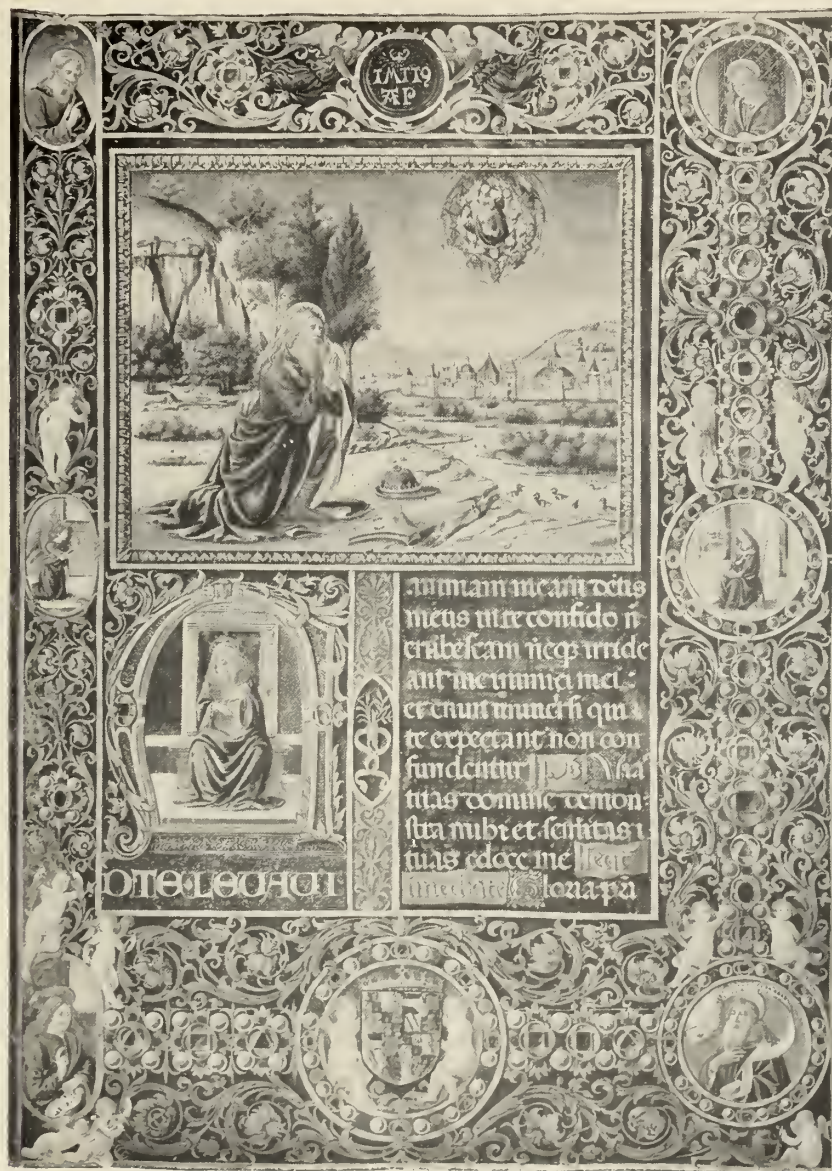 DTE·LEVAVI
animam meam deus
meus in te confido n̄
erubescam neqꝫ irride
ant me inimici mei:
qui
te expectant non con
fundentur Vias
tuas domine demon
stra mihi et semitas
tuas edoce me
Gloria pri